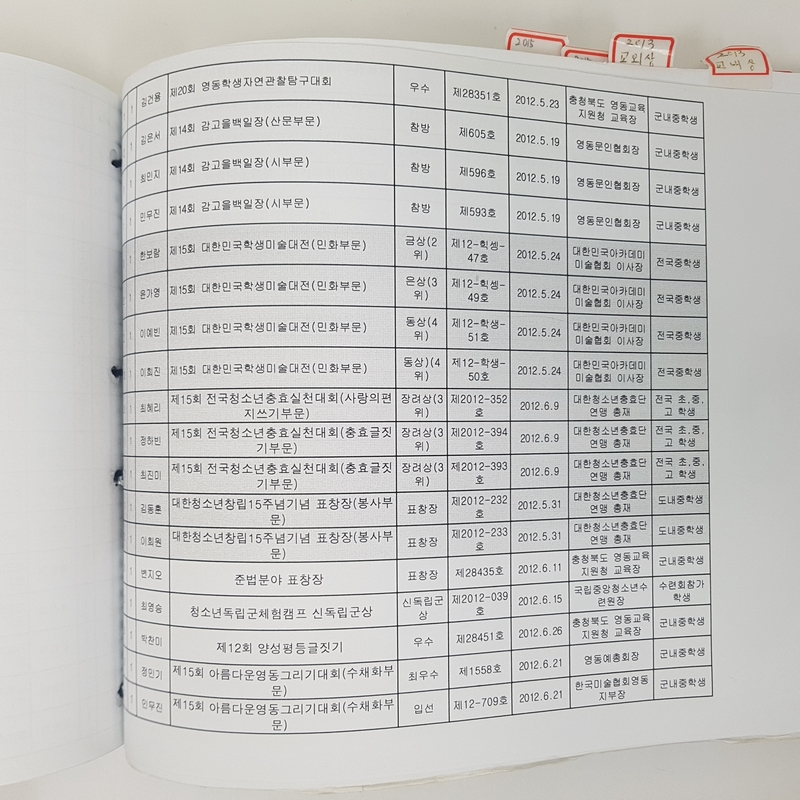 2015
2013
교외상
2013
교내상
1 김건용 제20회 영동학생자연관찰탐구대회 우수 제28351호 2012.5.23 충청북도 영동교육
지원청 교육장 군내중학생
1 김은서 제14회 감고을백일장(산문부문) 참방 제605호 2012.5.19 영동문인협회장 군내중학생
1 최민지 제14회 감고을백일장(시부문) 참방 제596호 2012.5.19 영동문인협회장 군내중학생
1 민무진 제14회 감고을백일장(시부문) 참방 제593호 2012.5.19 영동문인협회장 군내중학생
1 한보람 제15회 대한민국학생미술대전(민화부문) 금상(2
위) 제12-힉셍-
47호 2012.5.24 대한민국아카데미
미술협회 이사장 전국중학생
1 윤가영 제15회 대한민국학생미술대전(민화부문) 은상(3
위) 제12-힉셍-
49호 2012.5.24 대한민국아카데미
미술협회 이사장 전국중학생
1 이예빈 제15회 대한민국학생미술대전(민화부문) 동상(4
위) 제12-학생-
51호 2012.5.24 대한민국아카데미
미술협회 이사장 전국중학생
1 이희진 제15회 대한민국학생미술대전(민화부문) 동상)(4
위) 제12-학생-
50호 2012.5.24 대한민국아카데미
미술협회 이사장 전국중학생
1 최혜리 제15회 전국청소년충효실천대회(사랑의편
지쓰기부문) 장려상(3
위) 제2012-352
호 2012.6.9 대한청소년충효단
연맹 총재 전국 초,중,
고 학생
1 정하빈 제15회 전국청소년충효실천대회(충효글짓
기부문) 장려상(3
위) 제2012-394
호 2012.6.9 대한청소년충효단
연맹 총재 전국 초,중,
고 학생
1 최진미 제15회 전국청소년충효실천대회(충효글짓
기부문) 장려상(3
위) 제2012-393
호 2012.6.9 대한청소년충효단
연맹 총재 전국 초,중,
고 학생
1 김동훈 대한청소년창립15주년기념 표창장(봉사부
문) 표창장 제2012-232
호 2012.5.31 대한청소년충효단
연맹 총재 도내중학생
1 이회원 대한청소년창립15주념기념 표창장(봉사부
문) 표창장 제2012-233
호 2012.5.31 대한청소년충효단
연맹 총재 도내중학생
1 변지오 준법분야 표창장 표창장 제28435호 2012.6.11 충청북도 영동교육
지원청 교육장 군내중학생
1 최영승 청소년독립군체험캠프 신독립군상 신독립군
상 제2012-039
호 2012.6.15 국립중앙청소년수
련원장 수련회참가
학생
1 박찬미 제12회 양성평등글짓기 우수 제28451호 2012.6.26 충청북도 영동교육
지원청 교육장 군내중학생
1 정민기 제15회 아름다운영동그리기대회(수채화부
문) 최우수 제1558호 2012.6.21 영동예총회장 군내중학생
1 민무진 제15회 아름다운영동그리기대회(수채화부
문) 입선 제12-709호 2012.6.21 한국미술협회영동
지부장 군내중학생